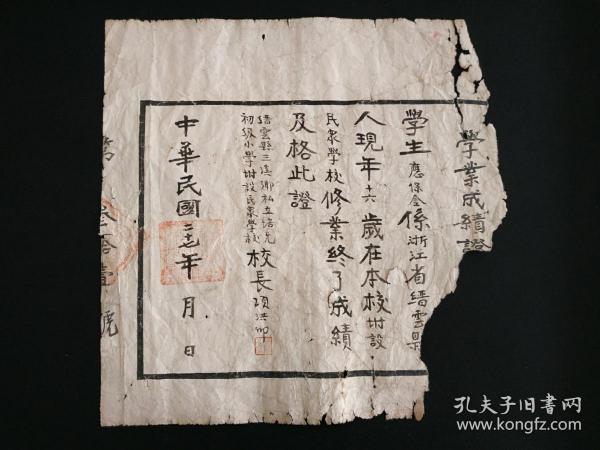 學業成績證
學生應保全係浙江省縉雲縣
人現年十六歲在本校附設
民眾學校修業終了成績
及格此證
縉雲縣三溪鄉私立培元
初級小學附設民眾學校
校長項洪卿
中華民國二十七年 月 日
第 叁拾壹號
孔夫子旧书网
www.kongfz.com